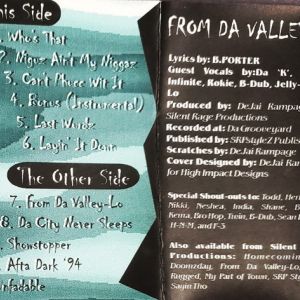 his Side
. Who's That
2. Niguz Ain't My Niggaz
3. Can't Phuce Wit It
4. Bonus (Instrumental)
5. Last Wordz
6. Layin' It Down
The Other Side
7. From Da Valley-Lo
8. Da City Never Sleeps
. Showstopper
. Afta Dark '94
nfadable
FROM DA VALLE
Lyrics by: B.PORTER
Guest Vocals by:Da 'K',
Infinite, Rokie, B-Dub, Jelly-
Lo
Produced by: DeJai Rampag
Silent Rage Productions
Recorded at: Da Grooveyard
Published by: SRPStyleZ Publis
Scratches by: DeJai Rampage
Cover Designed by: DeJai Ram
for High Impact Designs
Special Shout-outs to: Todd, Her
Nikki, Neshea, India, Shane, B
Kema, Bro Hop, Twin, B-Dub, Sean
H-N-M, and F-5
Also available from Silent
Productions: Homecomin
Doomzday, From Da Valley-Lo
Rugged, My Part of Town, SRP St
Sayin Tho